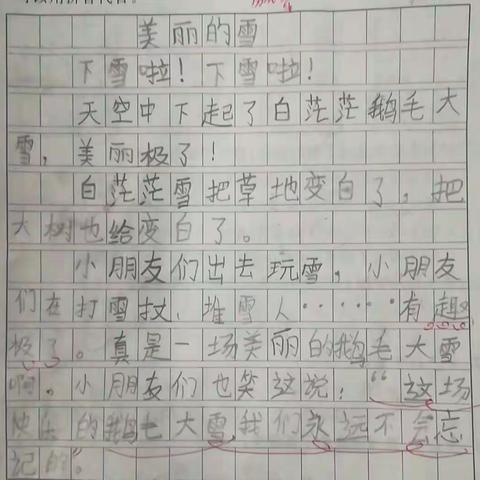 美丽的雪
下雪啦！下雪啦！
天空中下起了白茫茫鹅毛大
雪，美丽极了！
白茫茫雪把草地变白了，把
大树也给变白了。
小朋友们出去玩雪，小朋友
们在打雪扙、堆雪人······有趣
极了。真是一场美丽的鹅毛大雪
啊。小朋友们也笑这说：“这场
快乐的鹅毛大雪，我们永远不会忘
记的。”